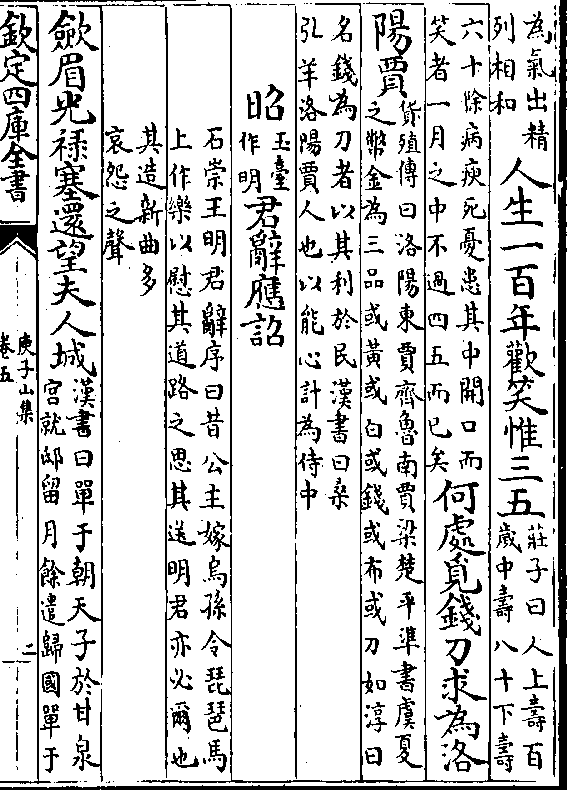 為氣出精
列相和
人生一百年歡笑惟三五
莊子曰人上壽百
歲中壽八十下壽
六十除病瘐死憂患其中開口而
笑者一月之中不過四五而已矣
何處覓錢刀求為洛
陽賈
貨殖傳曰洛陽東賈齊魯南賈梁楚平準書虞夏
之幣金為三品或黃或白或錢或布或刀如淳曰
名錢為刀者以其利於民漢書曰桑
弘羊洛陽賈人也以能心計為侍中
昭
玉臺
作明
君辭應詔
石崇王明君辭序曰昔公主嫁烏孫令琵琶馬
上作樂以慰其道路之思其送明君亦必爾也
其造新曲多
哀怨之聲
歛眉光祿塞還望夫人城
漢書曰單于朝天子於甘泉
宮就邸留月餘遣歸國單于
欽定四庫全書
庾子山集
卷五
二